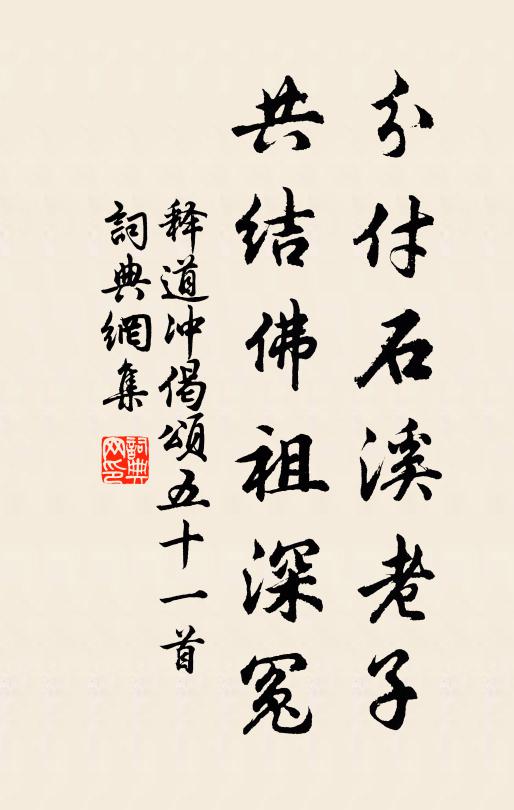 分付石溪老子
共结佛祖深冤
释道冲偈颂五十一首
詞典網集
詞典網印